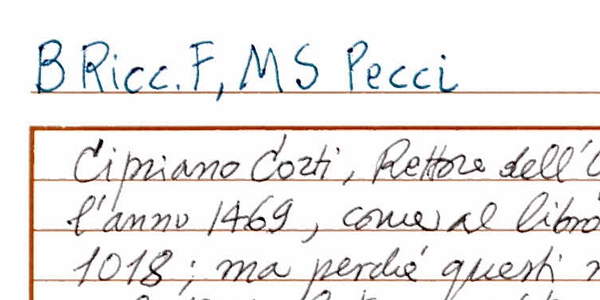 B Ricc. F, MS Pecci
Cipriano Corti, Rettore dell'
l'anno 1469, come al libro
1018; ma perché questi